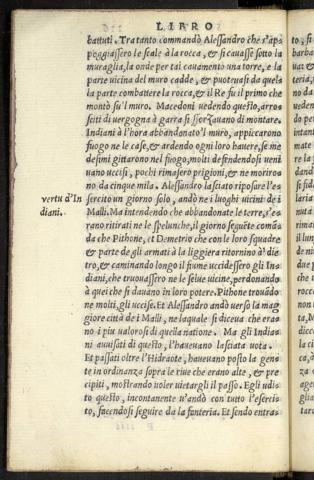 LIBRO
battuti. Tra tanto commandò Alessandro che s'ap=
poggiassero le scale à la rocca, & si cauasse sotto la
muraglia, la onde per tai cauamento una torre, e la
parte uicina del muro cadde, & poteuasi da quela
la parte combattere la rocca, & il Re fu il primo che
montò su'l muro. Macedoni uedendo questo, arro=
sciti di uergogna à garra si sforzauano di montare.
Indiani à l'hora abbandonato'l muro, appiccarono
fuogo ne le case, & ardendo ogni loro hauere, se me
desimi gittarono nel fuogo, molti defendendosi ueni
uano uccisi, pochi rimasero prigioni, & ne moriro=
no da cinque mila. Alessandro lasciato riposare l'es
vertu d'In
diani.
sercito un giorno solo, andò ne i luoghi uicini de i
Malli. Ma intendendo che abbandonate le terre, s'e=
rano ritirati ne le spelunche, il giorno seguēte comā=
da che Pithone, et Demetrio che con le loro squadre
& parte de gli armati à la liggiera ritornino à die
tro, & caminando longo il fiume uccidessero gli In=
diani, che truouassero ne le selue uicine, perdonando
à quei che si dauano in loro potere. Pithone trouādo
ne molti, gli uccise. Et Alessandro andò uerso la mag
giore città de i Malli, ne laquale si diceua che era=
no i piu ualorosi di quella natione. Ma gli India=
ni auuisati di questo, l'haueuano lasciata uota.
Et passati oltre l'Hidraote, haueuano posto la gen=
te in ordinanza sopra le riue che erano alte, & pre
cipiti, mostrando uoler uietargli il passo. Egli udi=
to questo, incontanente u'andò con tutto l'eserci=
to, facendosi seguire da la fanteria. Et sendo entra=